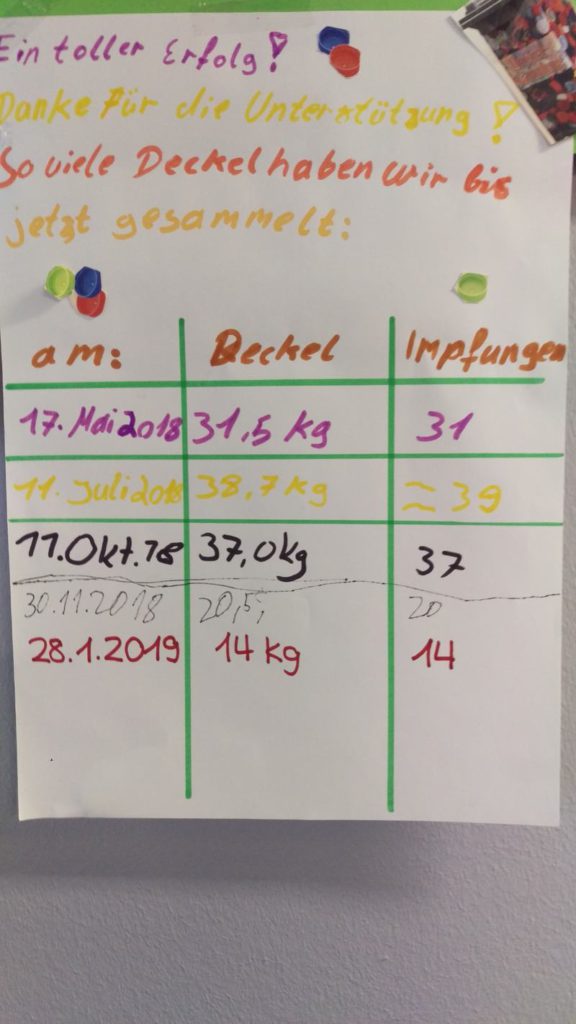 Ein toller Erfolg!
Danke für die Unterstützung!
So viele Deckel haben wir bis
jetzt gesammelt:
am: Deckel Impfungen
17. Mai 2018 31,5 kg 31
11. Juli 2018 38,7 kg ≈ 39
11. Okt. 18 37,0 kg 37
30.11.2018 20,5; 20
28.1.2019 14 kg 14